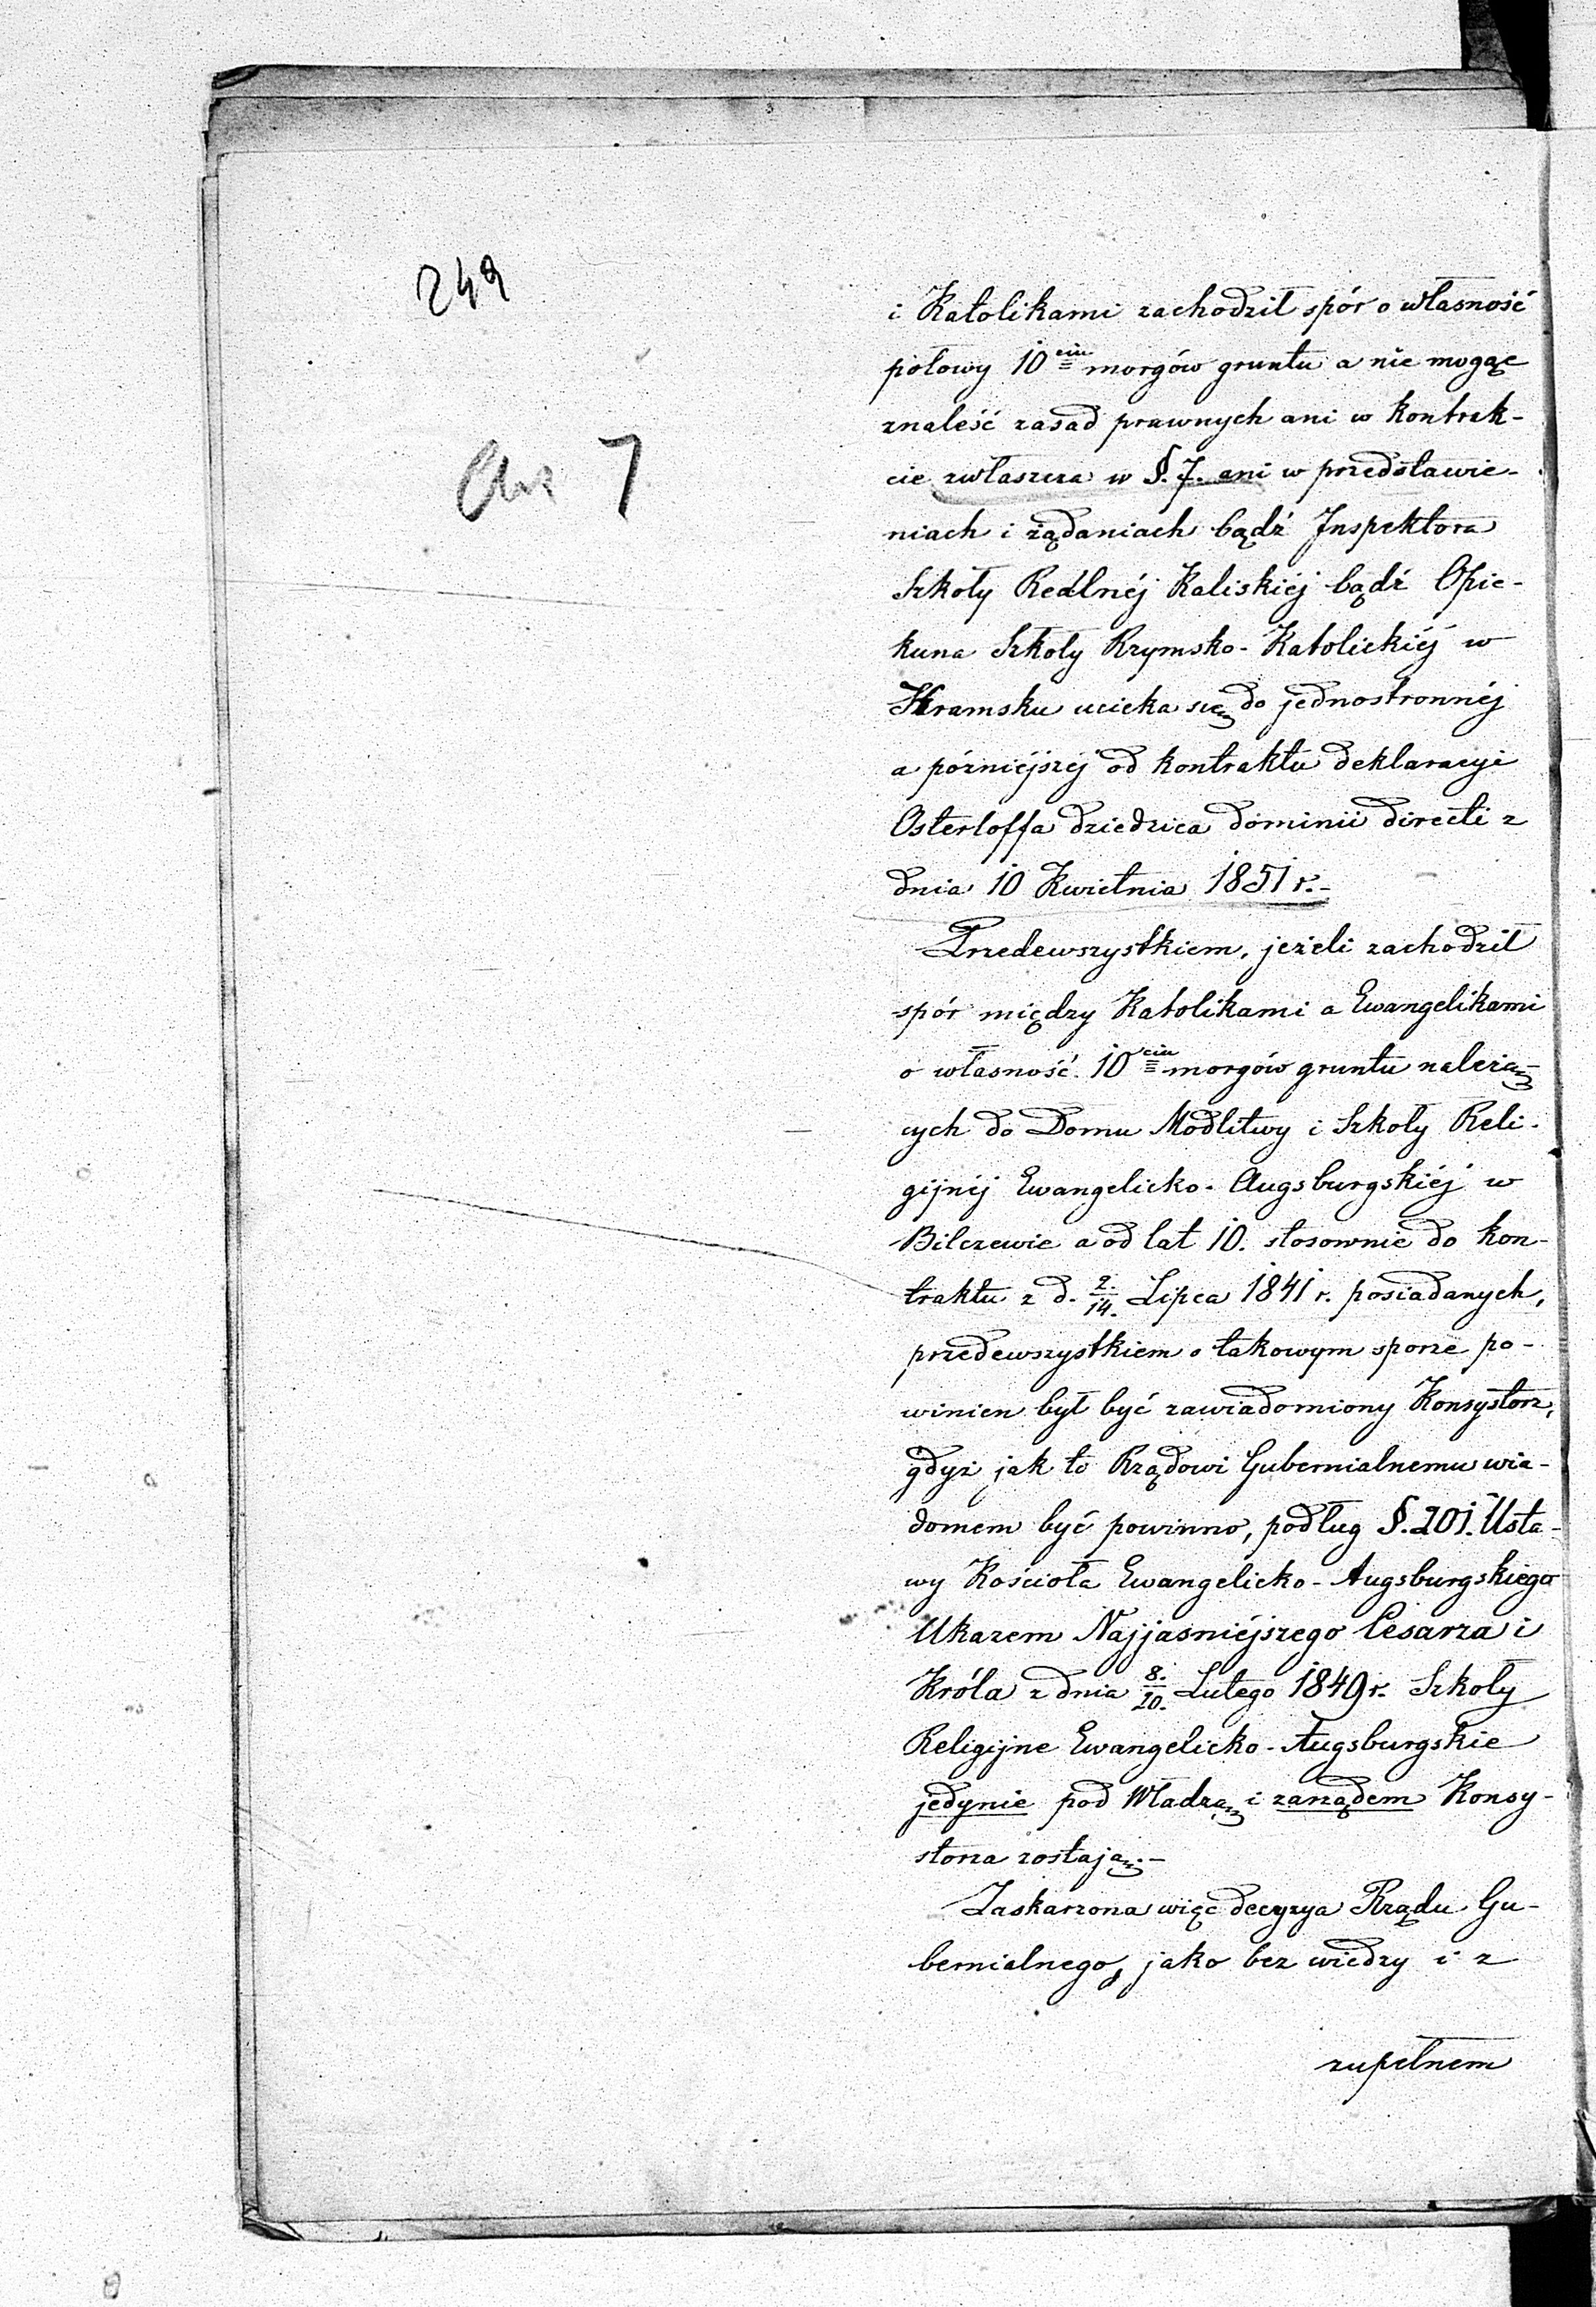 249
7
i Katolikami zachodził spór o własność
połowy 10ciu morgów gruntu a nie mogąc
znaleść zasad prawnych ani w kontrak-
cie zwłaszcza w §. 7. ani w przedstawie-
niach i żądaniach bądź Inspektora
Szkoły Reálnéj Kaliskiéj bądź Opie-
kuna Szkoły Rzymsko-Katolickiéj w
Kramsku ucieka się do jednostronnéj
a pózniéjszéj od kontraktu deklaracyi
Osterloffa dziedzica dominii directi z
dnia 10 Kwietnia 1851 r.-
Przedewszystkiem, jeżeli zachodził
spór między Katolikami a Ewangelikami
o własność 10ciu morgów gruntu należą-
cych do Domu Modlitwy i Szkoły Reli-
gijnéj Ewangelicko-Augsburgskiéj w
Bilczewie a od lat 10. stosownie do kon-
traktu z d. 2./14. Lipca 1841 r. posiadanych,
przedewszystkiem o takowym sporze po-
winien był być zawiadomiony Konsystorz,
gdyż jak to Rządowi Gubernialnemu wia-
domem być powinno, podług §. 201. Usta-
wy Kościoła Ewangelicko-Augsburgskiego
Ukazem Najjaśniéjszego Cesarza i
Króla z dnia 8./20. Lutego 1849 r. Szkoły
Religijne Ewangelicko-Augsburgskie
jedynie pod Władzą i zarządem Konsy-
storza zostają.-
Zaskarżona więc decyzya Rządu Gu-
bernialnego, jako bez wiedzy i z
zupełnem